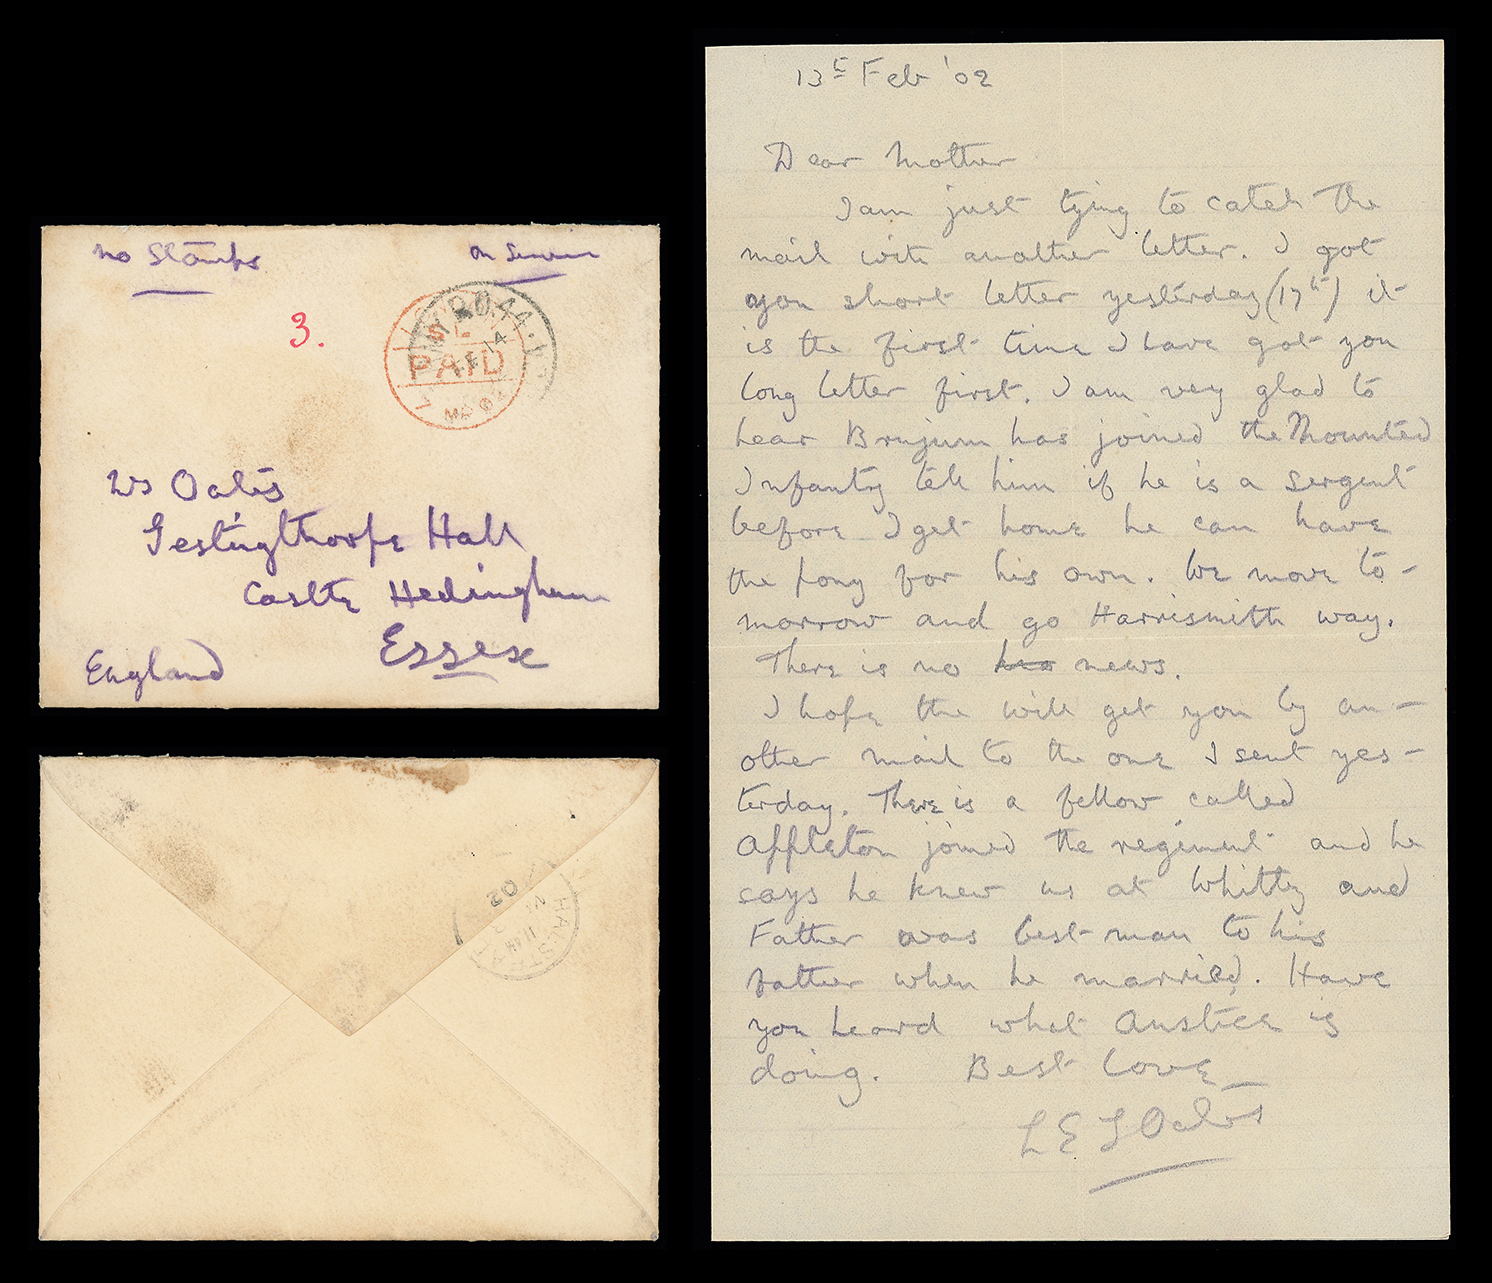 No Stamps
On Service
3.
PAID
Mrs Oates
Gestingthorpe Hall
Castle Hedingham
Essex
England
02
13th Feb '02
Dear Mother
I am just tying to catch the
mail with another letter. I got
you short letter yesterday (17th) it
is the first time I have got you
long letter first. I am very glad to
hear Brujum has joined the Mounted
Infanty tell him if he is a sergent
before I get home he can have
the pony for his own. We move to-
morrow and go Harrismith way.
There is no news.
I hope the will get you by an-
other mail to the one I sent yes-
terday. There is a fellow called
Appleton joined the regiment and he
says he knew us at Whitby and
Father was best man to his
father when he married. Have
you heard what Anstice is
doing. Best Love
L E G Oates